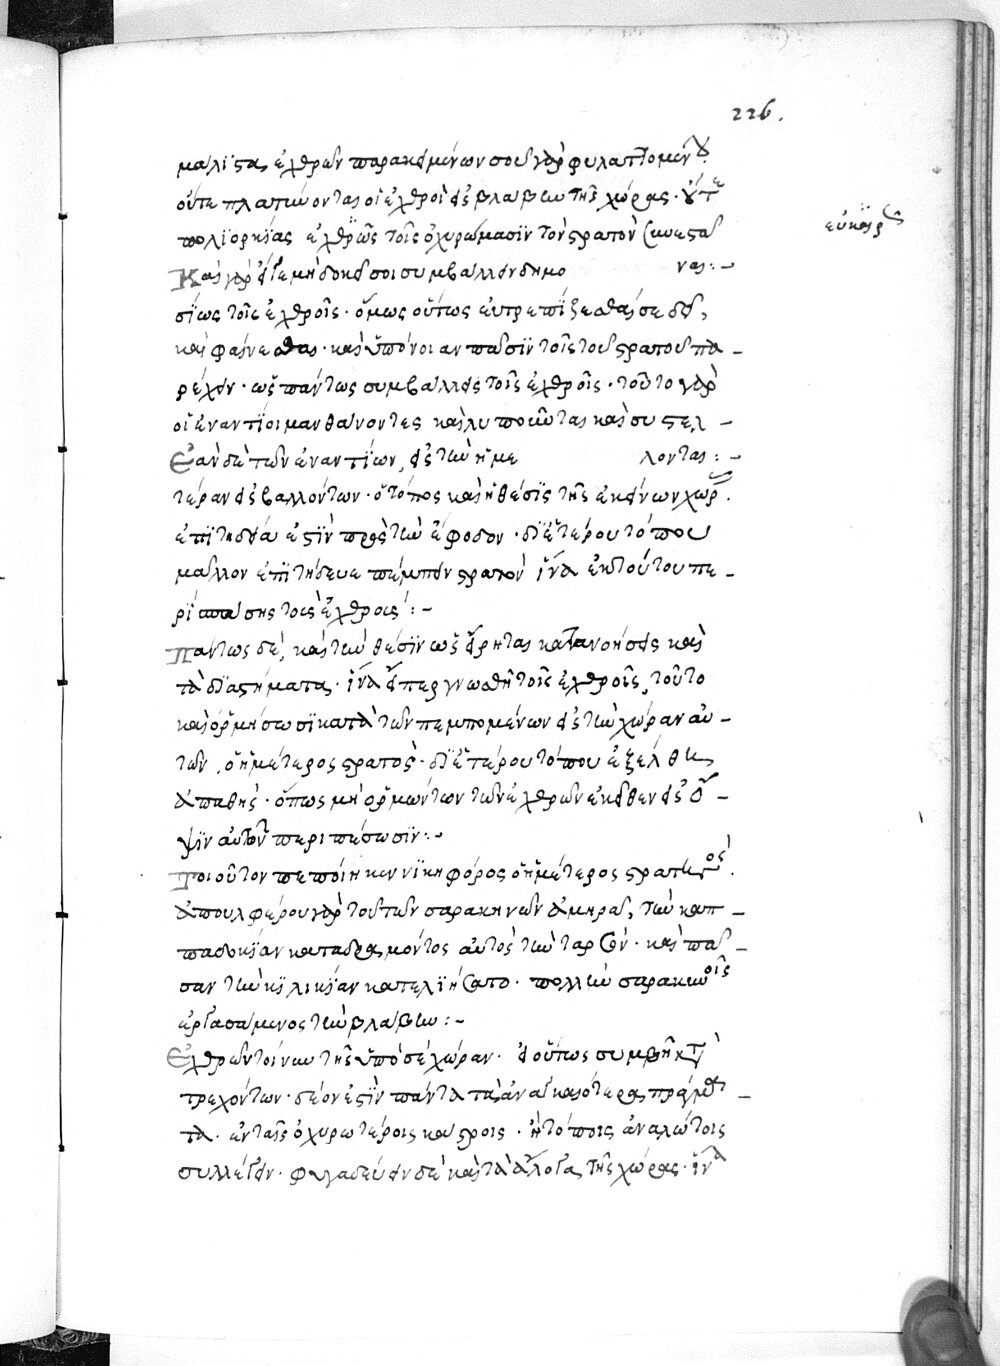 226.
μάλιστα ἐχθρῶν παρακειμένων σου γὰρ φυλαττομένου.
οὔτε πλαττύνονται οἱ ἐχθροὶ εἰς βλάβην τῆς χώρας. οὔτε
πολιορκίας ἐχθρῶς τοῖς ὀχυρώμασιν τὸν στρατὸν συνεσταλ
εὐκαίρως
Καὶ γὰρ εἴγε μὴ δοκεῖ σοι συμβαλλεῖν δημο νας:-
σίως τοῖς ἐχθροῖς. ὅμως οὕτως εὐτρεπίζεσθαί σε δεῖ,
καὶ φαίνεσθαι. καὶ ὑπόνοιαν πᾶσιν τοῖς τοῦ στρατοῦ πα-
ρέχειν. ὡς πάντως συμβαλλεῖς τοῖς ἐχθροῖς. τοῦτο γὰρ
οἱ ἐναντίοι μανθάνοντες καὶ λυποιῶνται καὶ συστελ-
Ἐὰν δὲ τῶν ἐναντίων, εἰς τὴν ἡμε λονται:-
τέραν εἰσβαλλόντων. ὁ τόπος καὶ ἡ θέσις τῆς ἐκείνων χώρας.
ἐπιτηδεία ἐστὶν πρὸς τὴν ἔφοδον. δι' ἑτέρου τόπου
μᾶλλον ἐπιτήδευε πέμπειν στρατὸν ἵνα ἐκ τούτου πε-
ρίσπασης τοῖς ἐχθροῖς:-
Πάντως δὲ, καὶ τὴν θέσιν ὡς εἴρηται κατανοήσεις καὶ
τὰ διαστήματα. ἵνα εἴπερ γνωσθῆ τοῖς ἐχθροῖς τοῦτο
καὶ ὁρμήσωσι κατὰ τῶν πεμπομένων εἰς τὴν χώραν αὐ-
τῶν, ὁ ἡμέτερος στρατὸς. δι' ἑτέρου τόπου ἐξέλθη
ἀπαθὴς. ὅπως μὴ ὁρμώντων τῶν ἐχθρῶν ἐκεῖθεν εἰς ὄ-
ψιν αὐτῶν περιπέσωσιν:-
Τοιοῦτον πεποίηκεν νικηφόρος ὁ ἡμέτερος στρατηγός.
ἀπουλφέρου γὰρ τοῦ τῶν σαρακηνῶν ἀμηρᾶ, τὴν καπ-
παδοκίαν καταδραμόντος αὐτὸς τὴν ταρσόν. καὶ πᾶ-
σαν τὴν κιλικίαν κατεληΐσατο. πολλὴν σαρακηνοῖς
ἐργασάμενος τὴν βλάβην:-
Ἐχθρῶν τοίνυν τῆς ὑπό σέ χώραν. εἰ οὕτως συμβῆ κα
τρεχόντων. δέον ἐστὶν πάντα τὰ ἀναγκαιότερα πράγμα-
τα. ἐν ταῖς ὀχυρωτέροις κάστροις. ἢ τόποις ἀναλώτοις
συλλέγειν. φυγαδεύειν δὲ καὶ τὰ ἄλογα τῆς χώρας. ἵνα